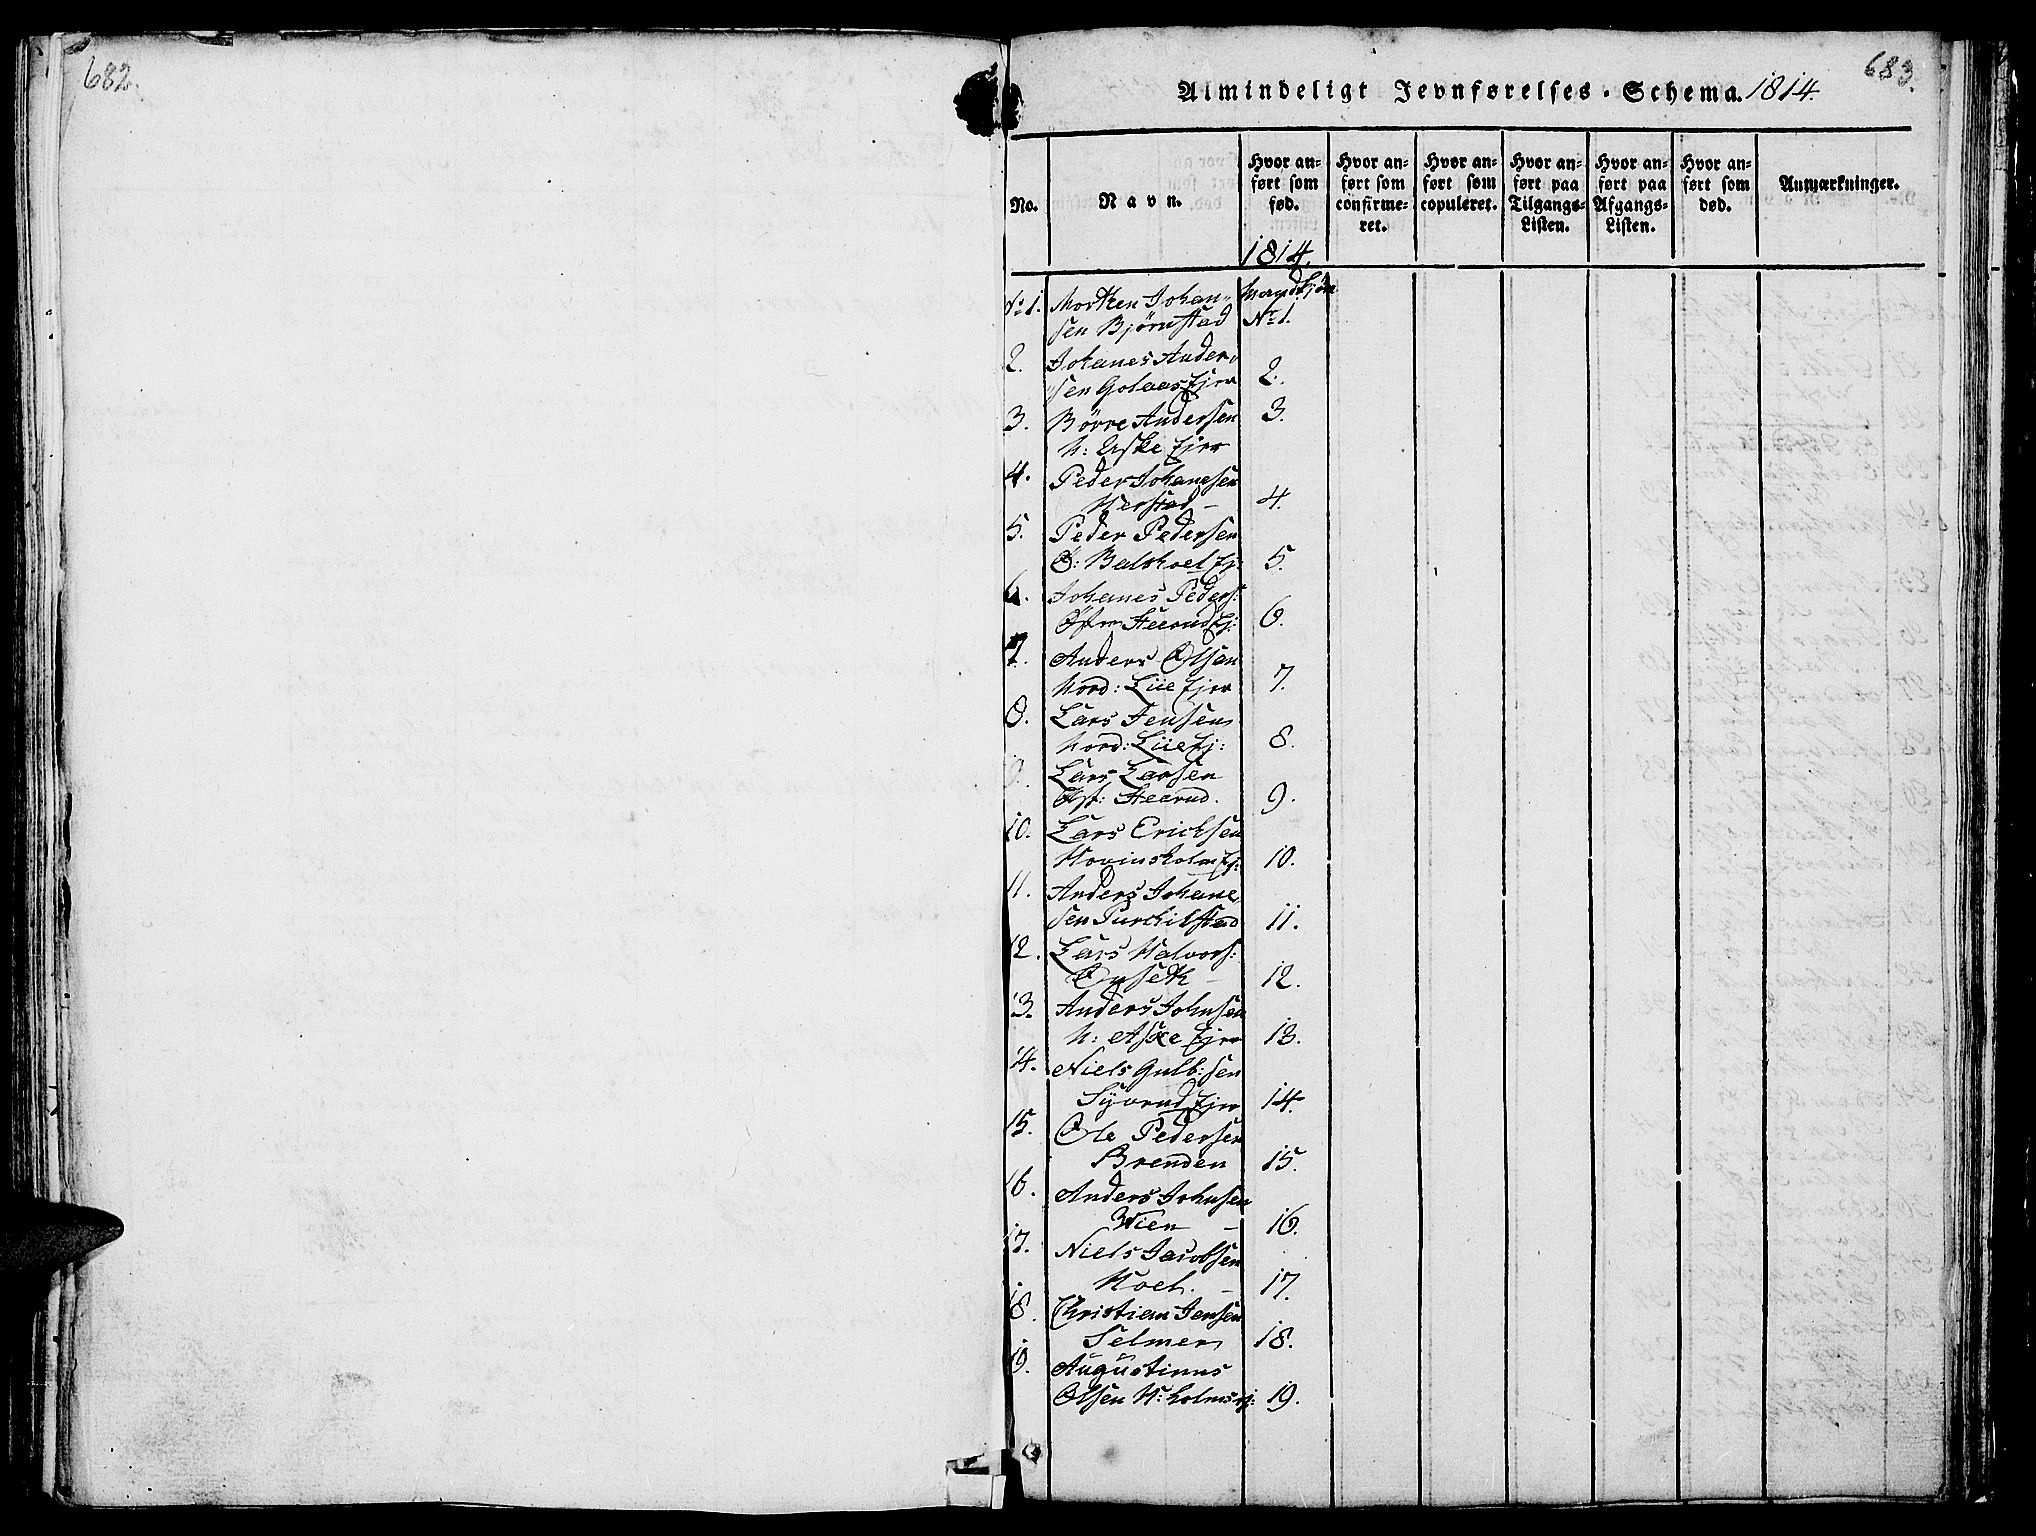 682.
683.
Almindeligt Jevnførelses-Schema. 1814.
No.
Navn.
Hvor anført som født.
Hvor anført som confirmeret.
Hvor anført som copuleret.
Hvor anført paa Tilgangs-Listen.
Hvor anført paa Afgangs-Listen.
Hvor anført som død.
Anmærkninger.
1814.
No 1. Morthen Johan-
sen Bjørnstad No 1.
2. Johanes Ander-
sen Golaas Ejer 2.
3. Børre Andersen 3.
N: Aske Ejer
4. Peder Johanesen
Herstad - 4.
5. Peder Pedersen
Ø: Balshoel Ej 5.
6. Johanes Peders:
Østre Steerud Ej: 6.
7. Anders Olsen
Nord: Liie Ejer 7.
8. Lars Jensen
Nord: Liie Ej: 8.
9. Lars Larsen
Øst: Steerud. 9.
10. Lars Ericksen
Hovinsholm Ej: 10.
11. Anders Johane-
sen Turchilstad 11.
12. Lars Halvors:
Onseth - 12.
13. Anders Johnsen
N: Aske Ejer 13.
14. Niels Gulb:sen
Syverud Ejer 14.
15. Ole Pedersen
Brenden 15.
16. Anders Johnsen
Wien - 16.
17. Niels Jacobsen
Hoel. - 17.
18. Christian Jensen
Selmer 18.
19. Augustinus
Olsen H:holms ej: 19.